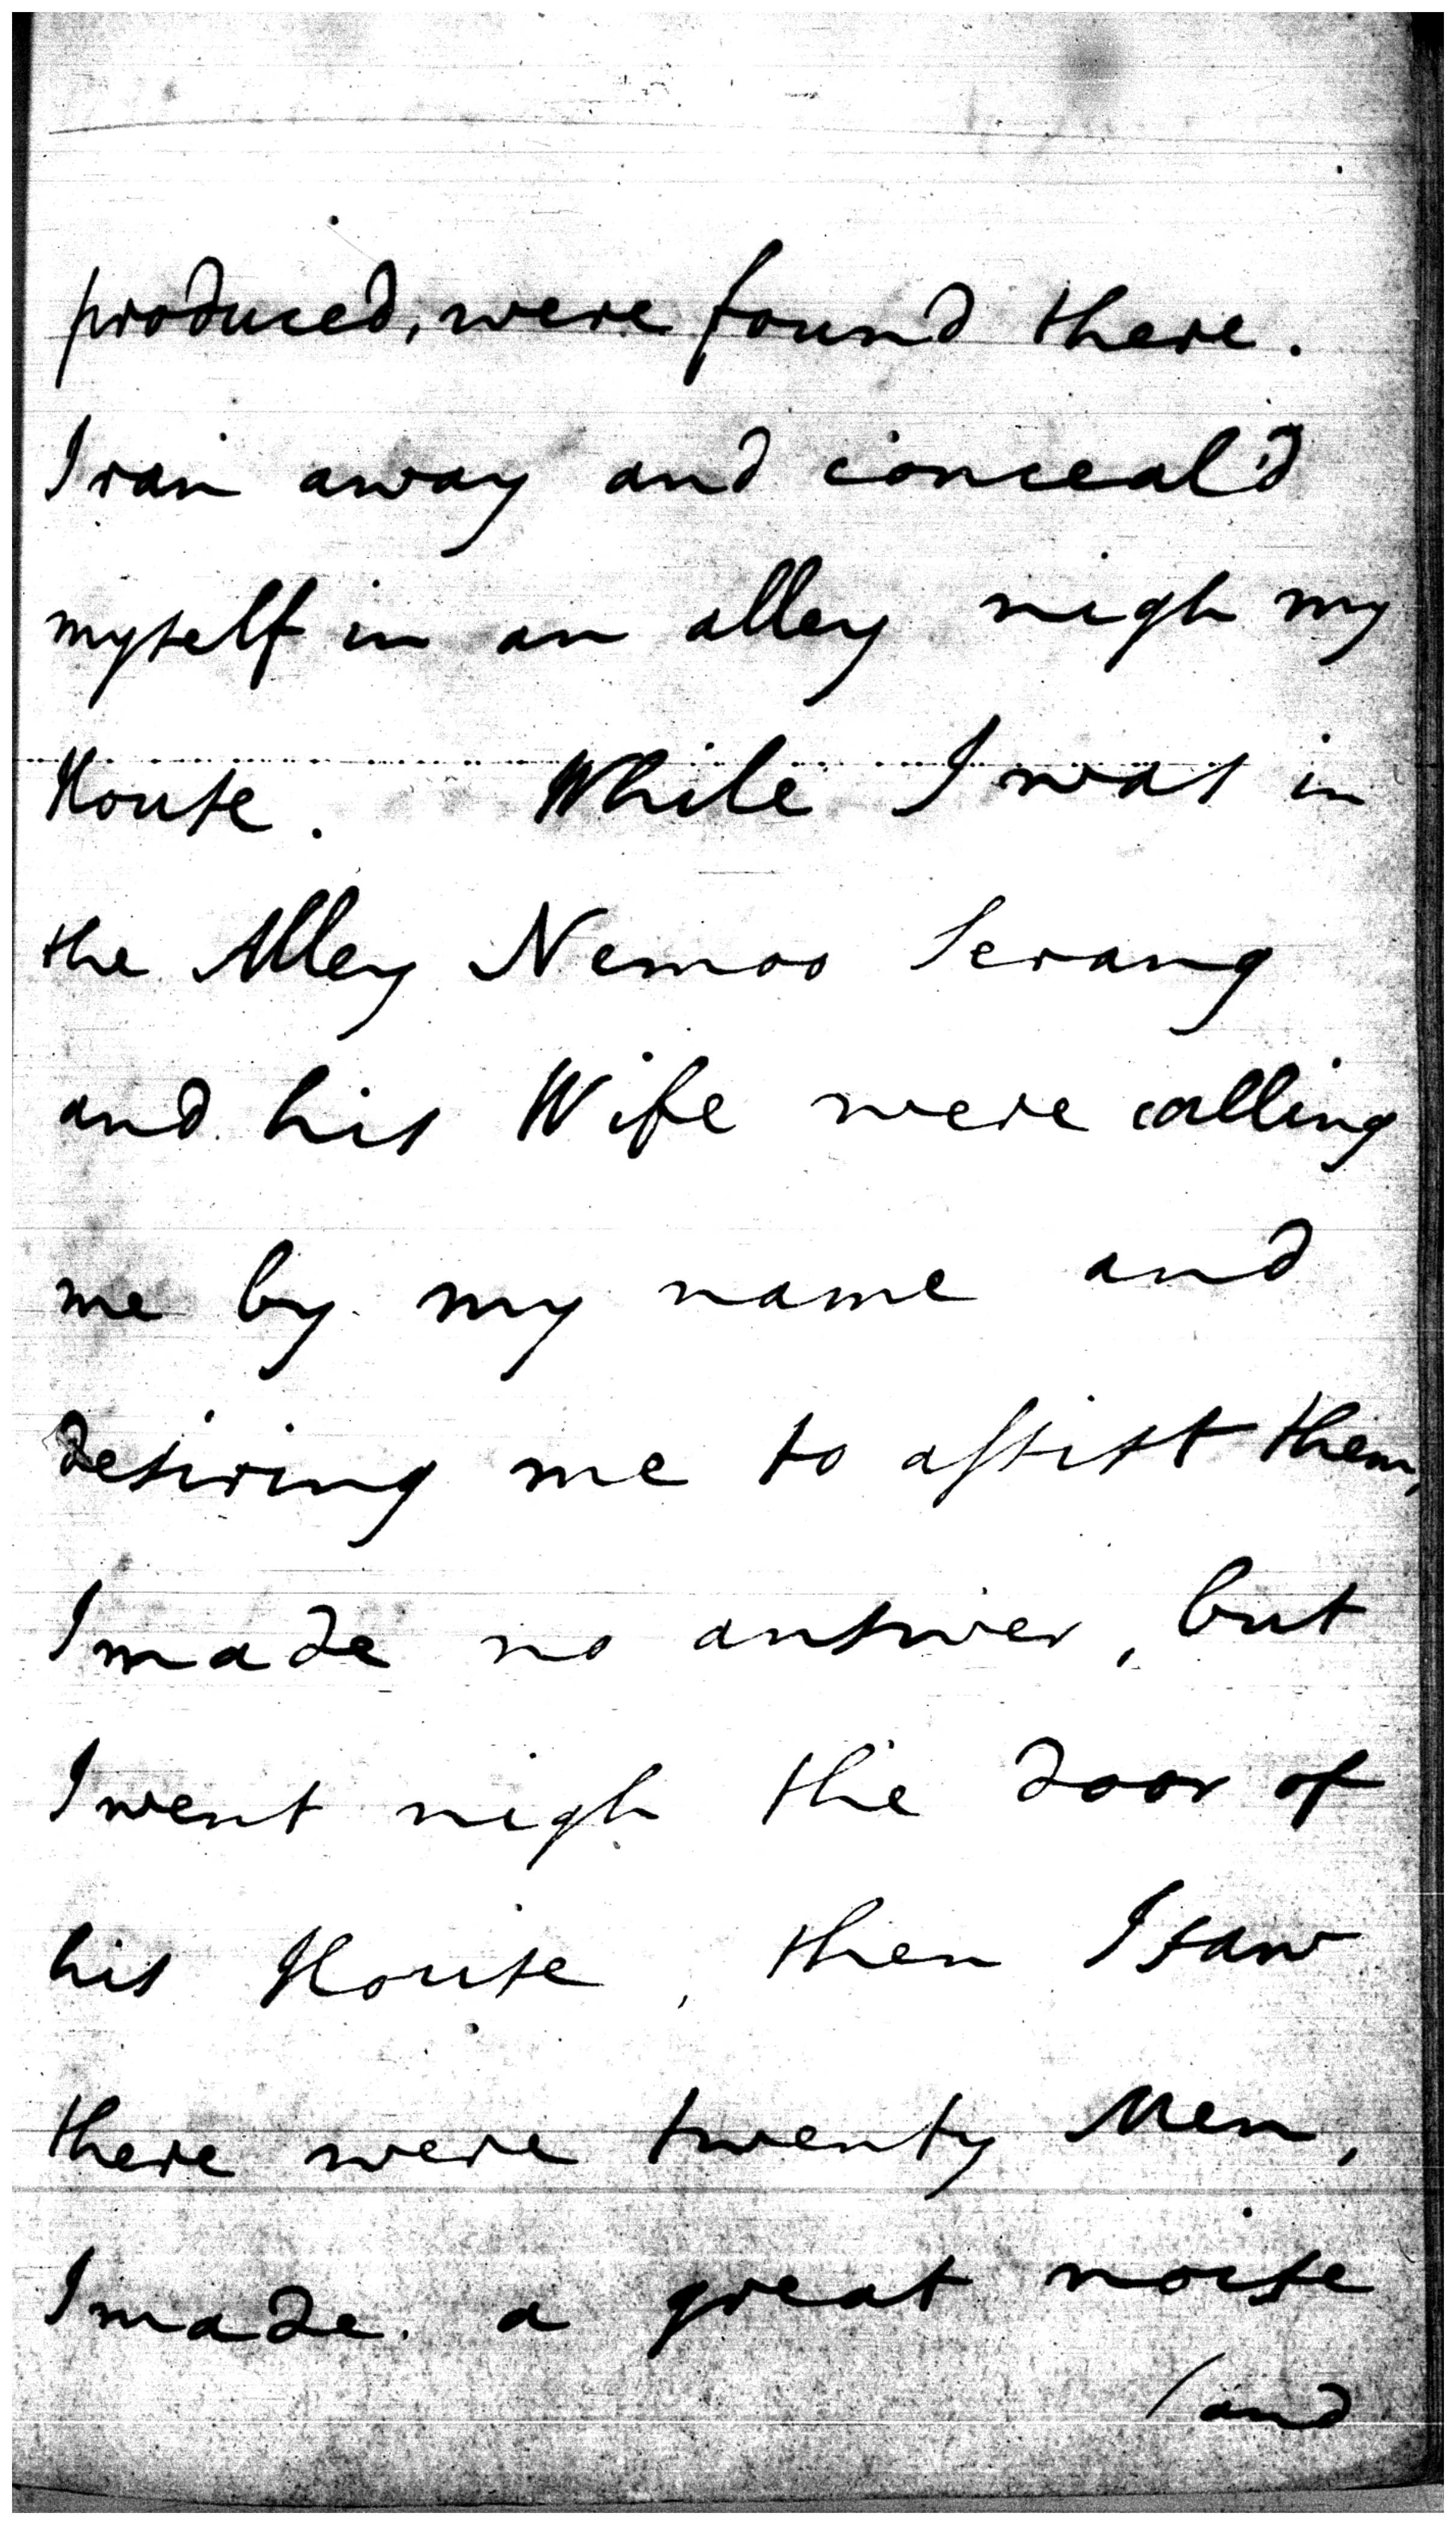 produced, were found there.
I ran away and conceal'd
myself in an alley nigh my
House. While I was in
the Alley Nemoo Serang
and his Wife were calling
me by my name and
desiring me to assist them,
I made no answer, but
I went nigh the door of
his House, then I saw
there were twenty Men,
I made a great noise
(and